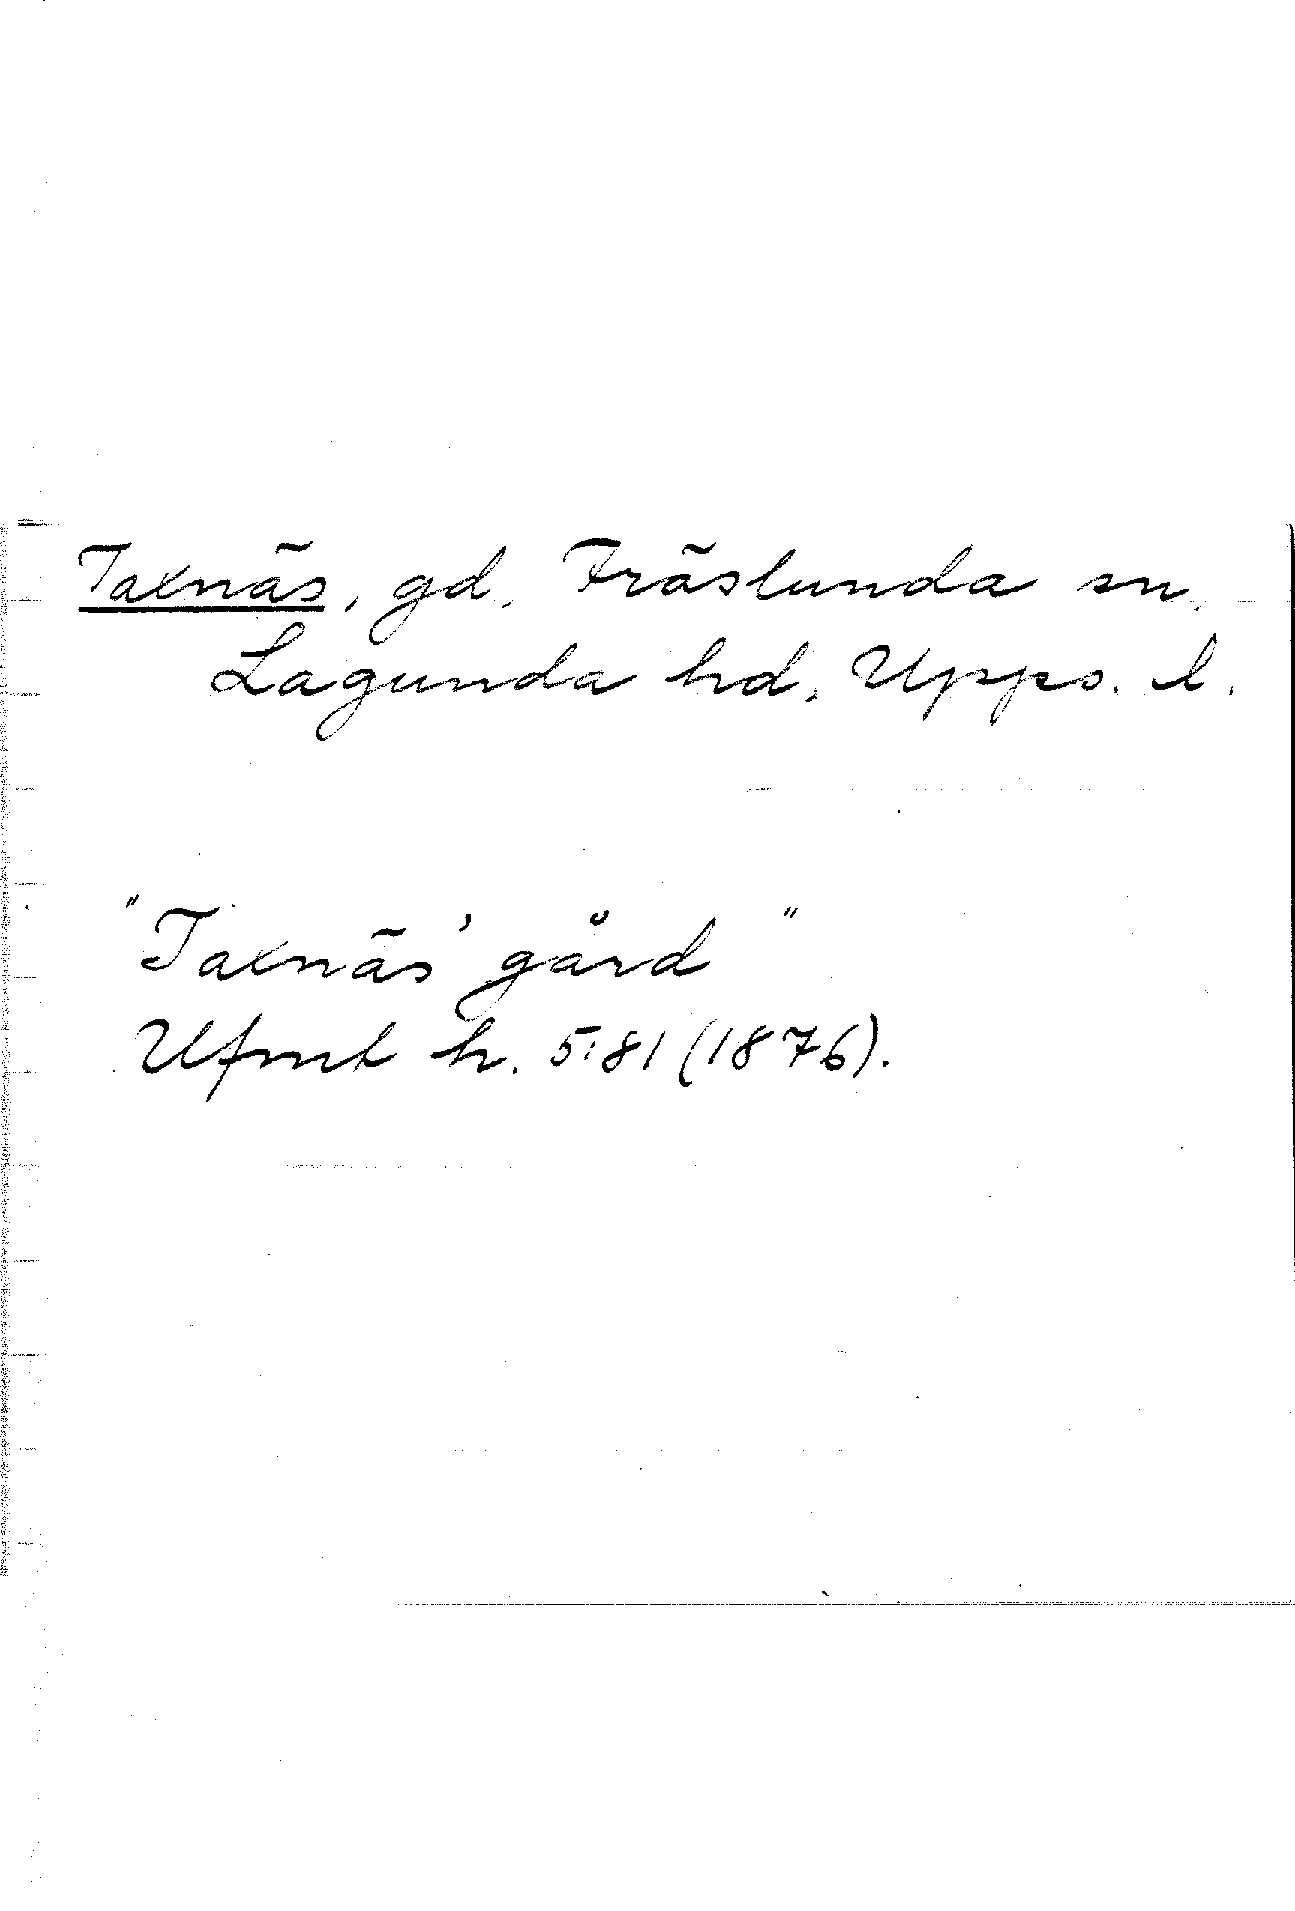 Taxnäs, gd, Fräslunda sn,
Lagunda hd, Upps. l.
"Taxnäs' gård"
Ufmt h. 5:81 (1876).